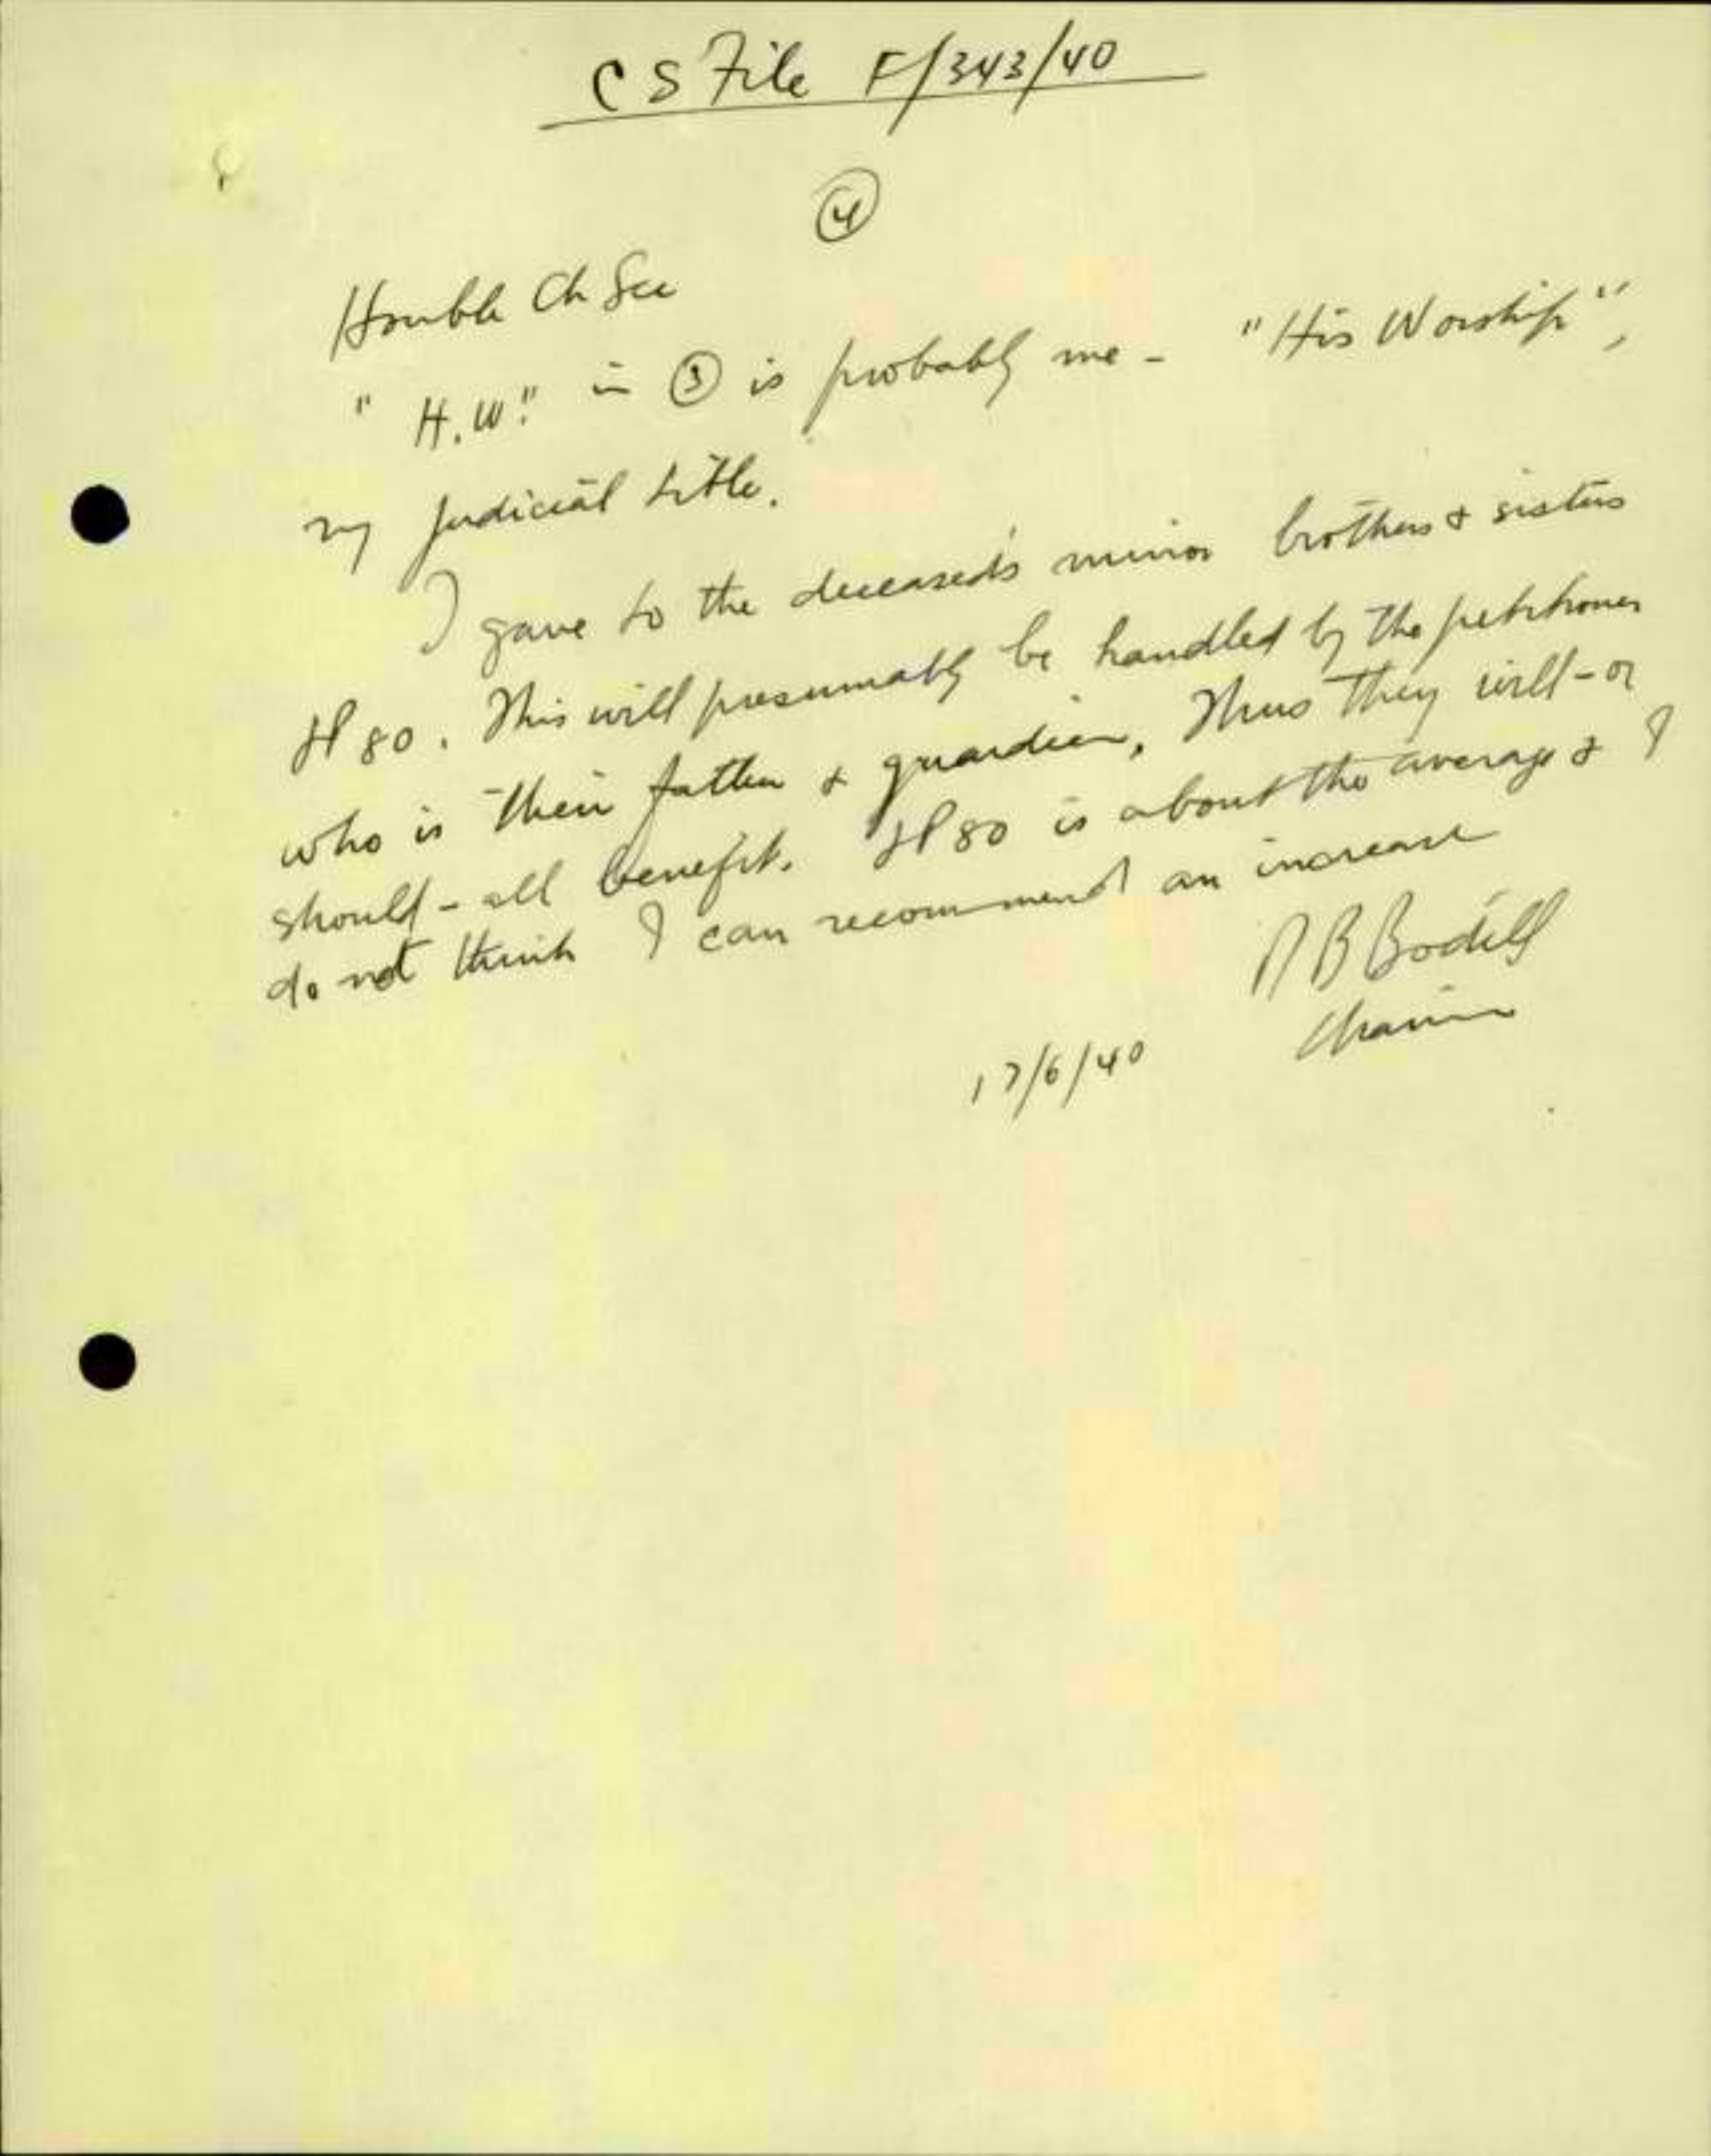 CS File F/343/40
④
Honble Ch Sec
"H.W." in ③ is probably me - "His Worship",
my judicial title.
I gave to the deceased's minor brothers & sisters
£P 80. This will presumably be handled by the petitioner
who is their father & guardian. Thus they will - or
should - all benefit. £P 80 is about the average & I
do not think I can recommend an increase
Bodilly
17/6/40